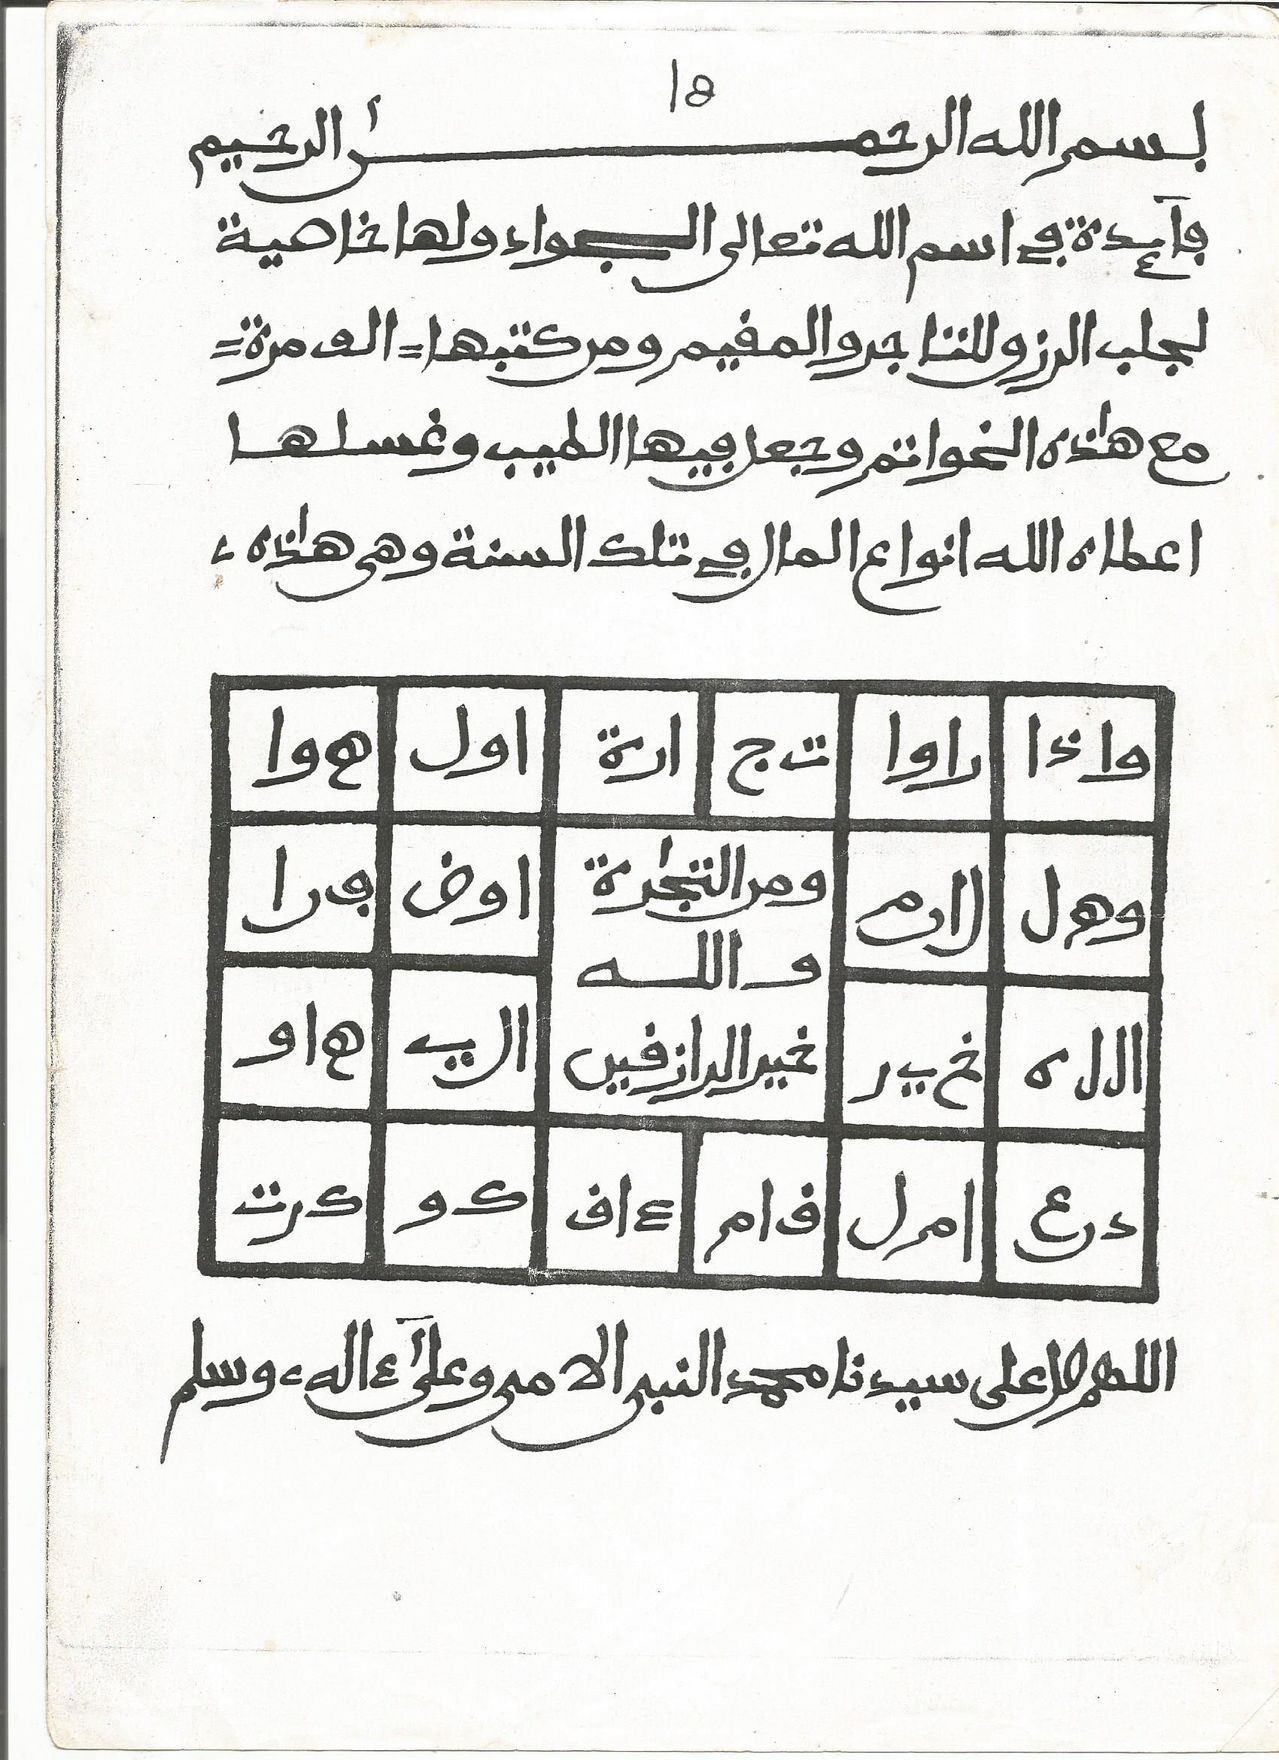 ١٥
بسم الله الرحمن الرحيم
فآئدة في اسم الله تعالى الجواد ولها خاصية
لجلب الرزق للتاجر والمقيم ومن كتبها = الف مرة =
مع هذه الخواتم وجعل فيها الطيب وغسلها
اعطاه الله انواع المال في تلك السنة وهي هذه
واذا راوا ت ج ارة اول ه وا
وه ل لا ارم ومن التجٰرة اوض ف را
والله
ال ل ه خ ي ر خير الرازقين ال ي ه ا و
د ر ع ام ر ل ق ا م ع ا ق ك و ك ر ت
اللهم صل على سيدنا محمد النبي الامي وعلىٓ ءاله وسلم